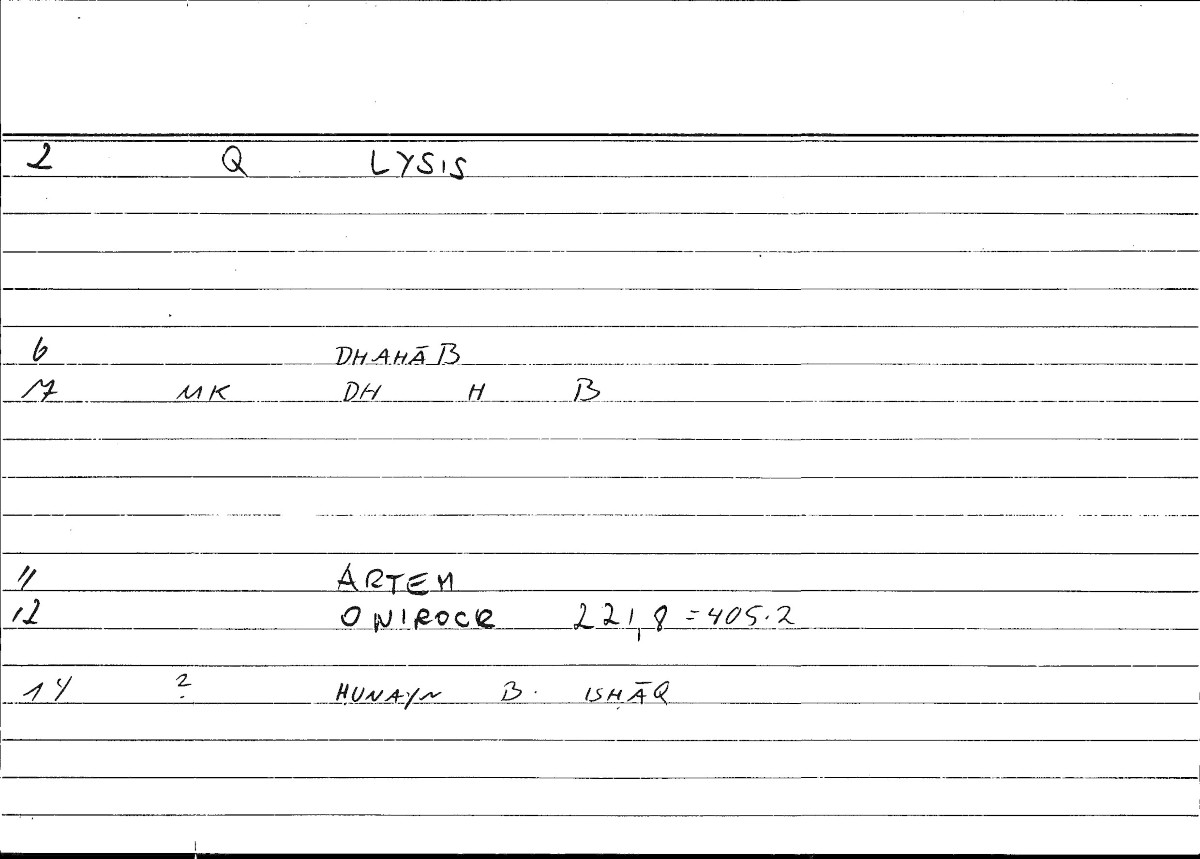 2 Q LYSIS
6 DHAHĀB
17 MK DH H B
11 ARTEM
12 ONIROCR 221,8 = 405.2
14 ? ḤUNAYN B. ISḤĀQ